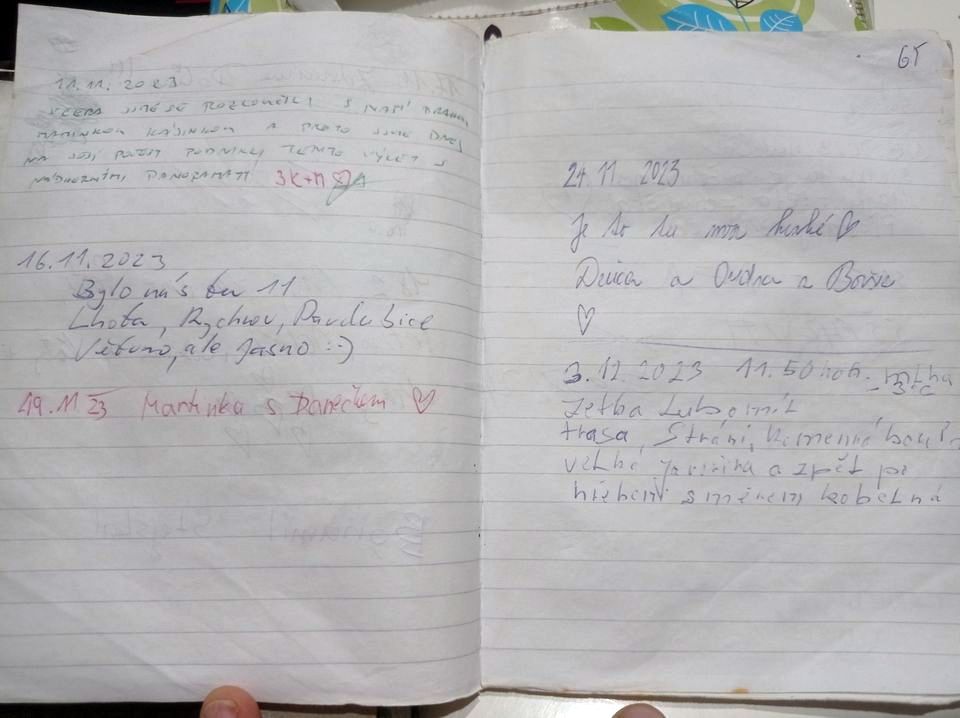 11.11. 2023
VČERA JSME SE ROZLOUČILI S NAŠÍ DRAHOU
MAMINKOU A PROTO JSME DNES
NA JEJÍ POČEST PODNIKLI TENTO VÝLET S
NÁDHERNÝMI PANORAMATY 3K+M ♡
16.11.2023
Bylo nás tu 11
Lhota, Rychnov, Pardubice
Větrno, ale jasno :-)
19.11 23 Martinka s Danečkem ♡
65
24.11 2023
Je to tu moc hezké ♡
a Ondra a Bořek
♡
3.12.2023 11.50 hod. mlha
-3°C
Zetba Lubomír
trasa Strání, Kamenná bouda
velká Javořina a zpět po
hřebeni směrem kobelná